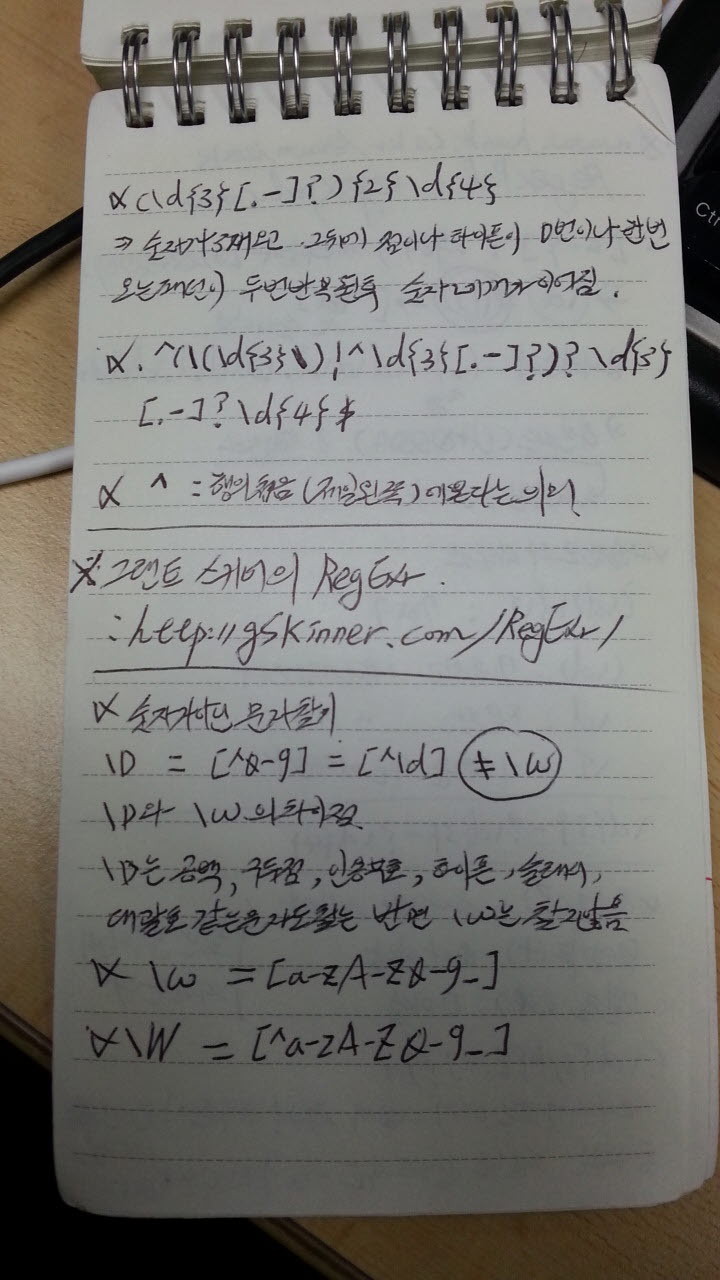 ※ (\d{3}[.-]?){2}\d{4}
⇒ 숫자가 3개오고 그뒤에 점이나 하이픈이 0번이나 한번
오는패턴이 두번반복된후 숫자 4개가 이어짐.
※. ^(\(\d{3}\)|^\d{3}[.-]?)?\d{3}
[.-]?\d{4}$
※ ^ : 행의처음(제일왼쪽)에온다는의미
※ 그랜트 스키너의 RegExr.
: http://gskinner.com/RegExr/
※ 숫자가아닌 문자찾기
\D = [^0-9] = [^\d] ≠ \w
\D와 \w의차이점
\D는 공백, 구두점, 인용부호, 하이픈, 슬래시,
대괄호 같은문자도찾는 반면 \w는 찾지않음
※ \w = [a-zA-Z0-9_]
※ \W = [^a-zA-Z0-9_]
Ct